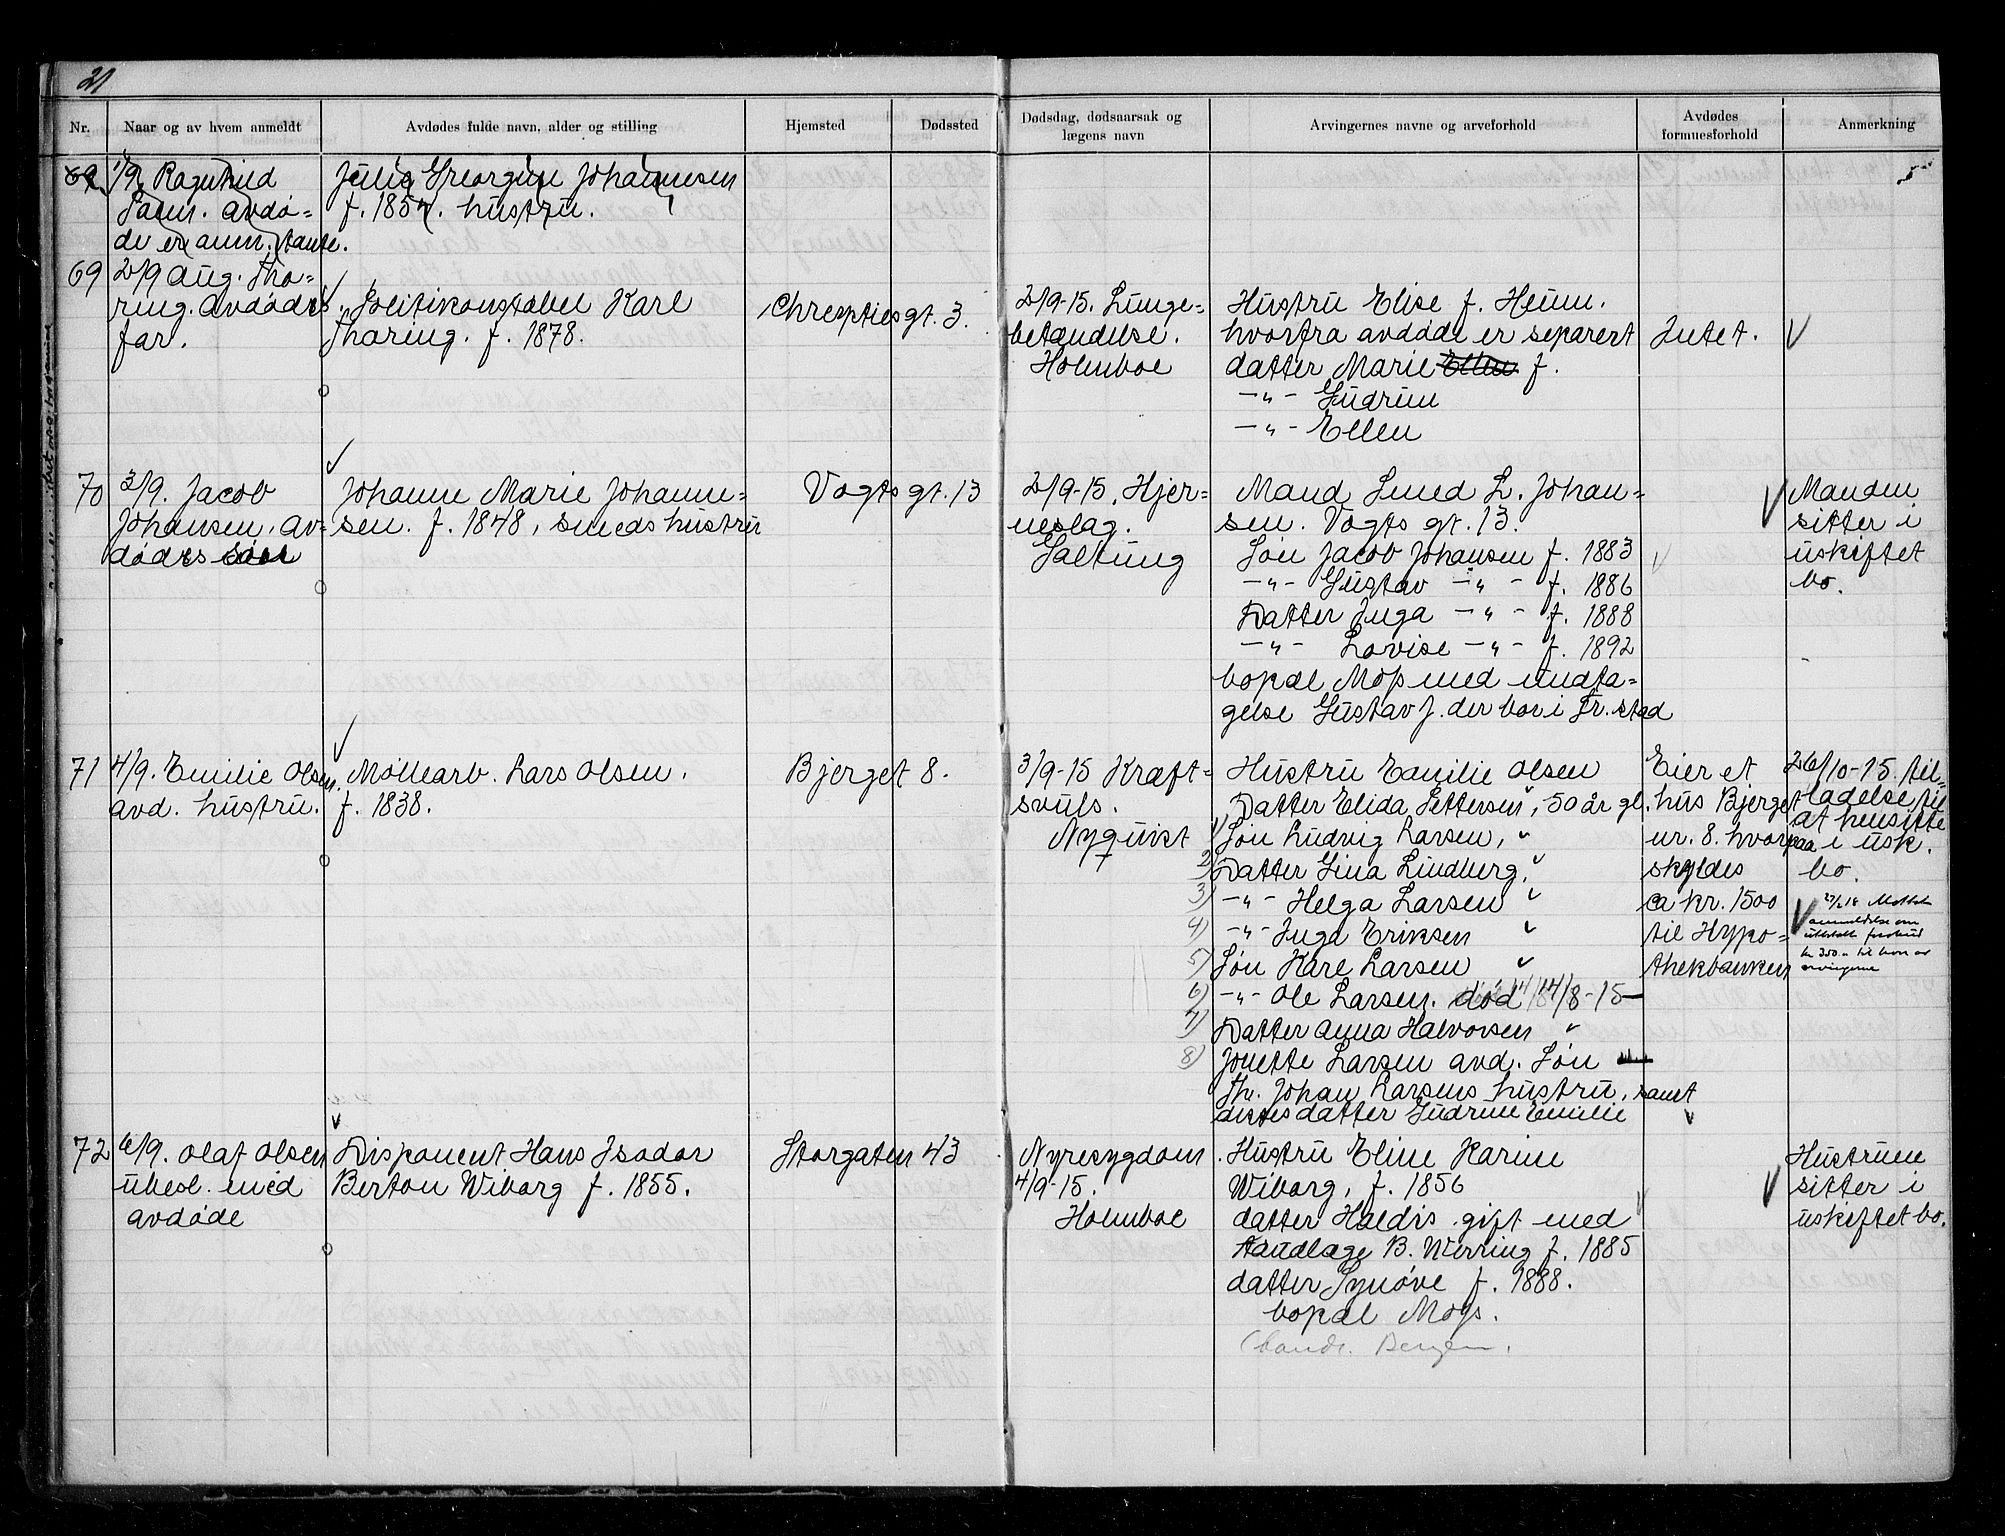 21
Nr.
Naar og av hvem anmeldt
Avdødes fulde navn, alder og stilling
Hjemsted
Dødssted
Dødsdag, dødsaarsak og
lægens navn
Arvingernes navne og arveforhold
Avdødes
formuesforhold
Anmerkning
1/9 Ragnhild
avdø-
de er anm. tante.
Julie Georgine Johannesen
f. 1854. hustru.
69
2/9 Aug. Tho-
ring. Avdødes
far.
Politikonstabel Karl
Thoring. f. 1878.
gt. 3.
2/9-15. Lunge-
betændelse.
Holmboe
Hustru Elise f. Heum.
hvorfra avdøde er separert
datter Marie Ellen f.
-"- Gudrun
-"- Ellen
Intet.
70
3/9. Jacob
Johansen, av-
dødes søn
Johanne Marie Johanne-
sen. f. 1848, smeds hustru
Vogts gt. 13
2/9-15, Hjer-
neslag.
Galtung
Mand Smed L. Johan-
sen. Vogts gt. 13.
Søn Jacob Johansen f. 1883
-"- Gustav -"- f. 1886
Datter Inga -"- f. 1888
-"- Lovise -"- f. 1892
bopæl Moss med undta-
gelse Gustav J. der bor i Fr.stad
Manden
sitter i
uskiftet
bo.
71
4/9. Emilie Olsen.
avd. hustru.
Møllearb. Lars Olsen.
f. 1838.
Bjerget 8.
3/9-15 Kræft-
svuls.
Nyquist
Hustru Emilie Olsen
Datter Elida Pettersen, 50 år gl.
1) Søn Ludvig Larsen,
2) Datter Gina Lindberg,
3) -"- Helga Larsen
4) -"- Inga Eriksen
5) Søn Karl Larsen
6) -"- Ole Larsen. død 14/8-15
7) Datter Anna Halvorsen
8) Jonette Larsen avd. Søn
Th. Johan Larsens hustru, samt
disses datter Gudrun Emilie
Eier et
hus Bjerget
nr. 8. hvorpaa
skyldes
ca kr. 1500
til Hypo-
thekbanken
26/10-15. til-
ladelse til
at hensitte
i usk.
bo.
anmeldelse om
utbetalt forskud
kr 350.- til hver av
arvingerne
72
6/9. Olaf Olsen
ubesl. med
avdøde
Disponent Hans Isodor
Berton Wiborg f. 1855.
Storgaten 43
Nyresygdom
4/9-15.
Holmboe
Hustru Eline Karine
Wiborg, f. 1856
datter Haldis gift med
tandlæge B. Werring f. 1885
datter Synøve f. 1888.
bopæl Moss.
Bergen.
Hustruen
sitter i
uskiftet bo.